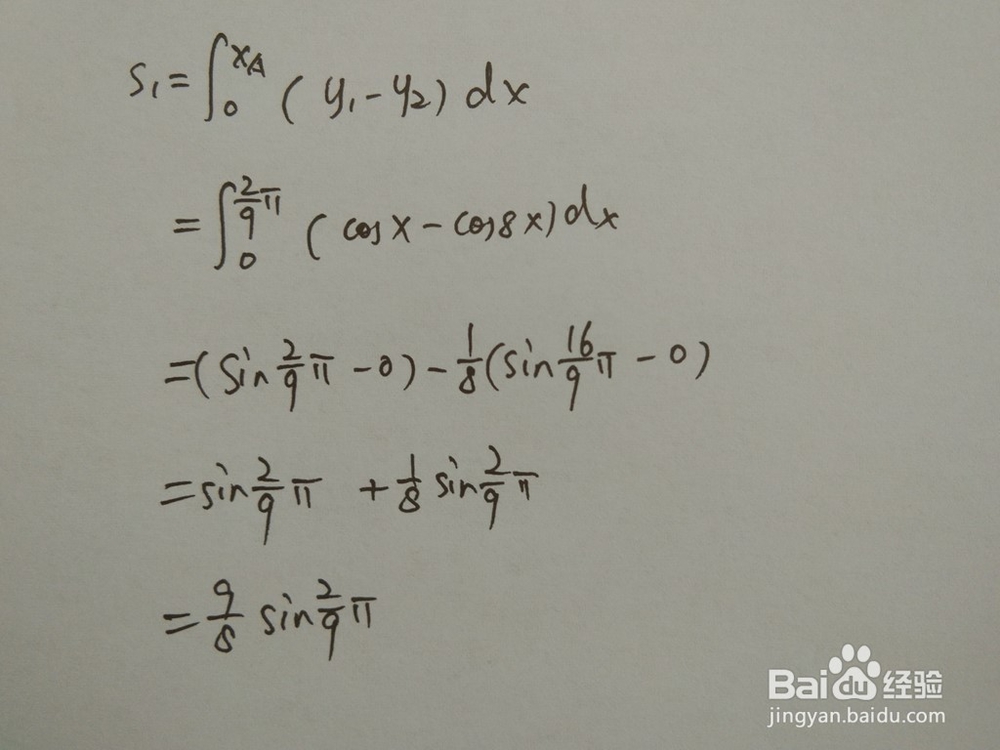 S₁=∫₀^{x_A} (y₁-y₂) dx
=∫₀^{2/9 π} (cosx-cos8x)dx
=(sin 2/9 π -0)- 1/8 (sin 16/9 π -0)
=sin 2/9 π + 1/8 sin 2/9 π
= 9/8 sin 2/9 π
Baidu经验
jingyan.baidu.com